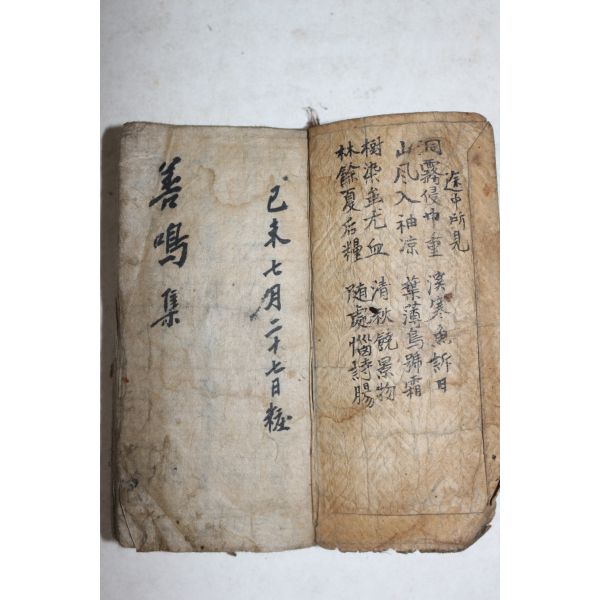 途中所見
洞霧侵巾重 溪寒魚訴日
山風入袖凉 葉薄鳥號霜
樹染蚩尤血 清秋饒景物
林餘夏后糧 随處惱詩腸
己未七月二十七日粧
善鳴集